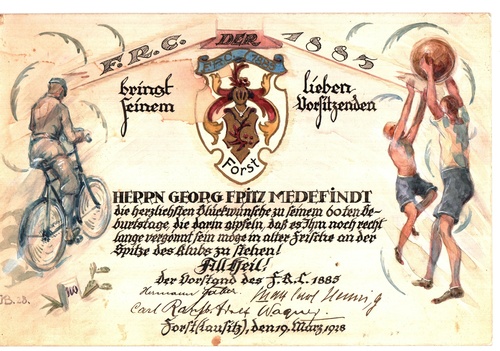 DER
F.R.C. 1885
bringt lieben
seinem Vorsitzenden
Forst
HERRN GEORG FRITZ MEDEFINDT
die herzlichsten Glückwünsche zu seinem 60ten Ge-
burtstage die darin gipfeln, daß es Ihm noch recht
lange vergönnt sein möge in alter Frische an der
Spitze des Klubs zu stehen!
All Heil!
Der Vorstand des F.R.C. 1885
Hermann
Carl Wagner
Forst (Lausitz), den 19. März 1928